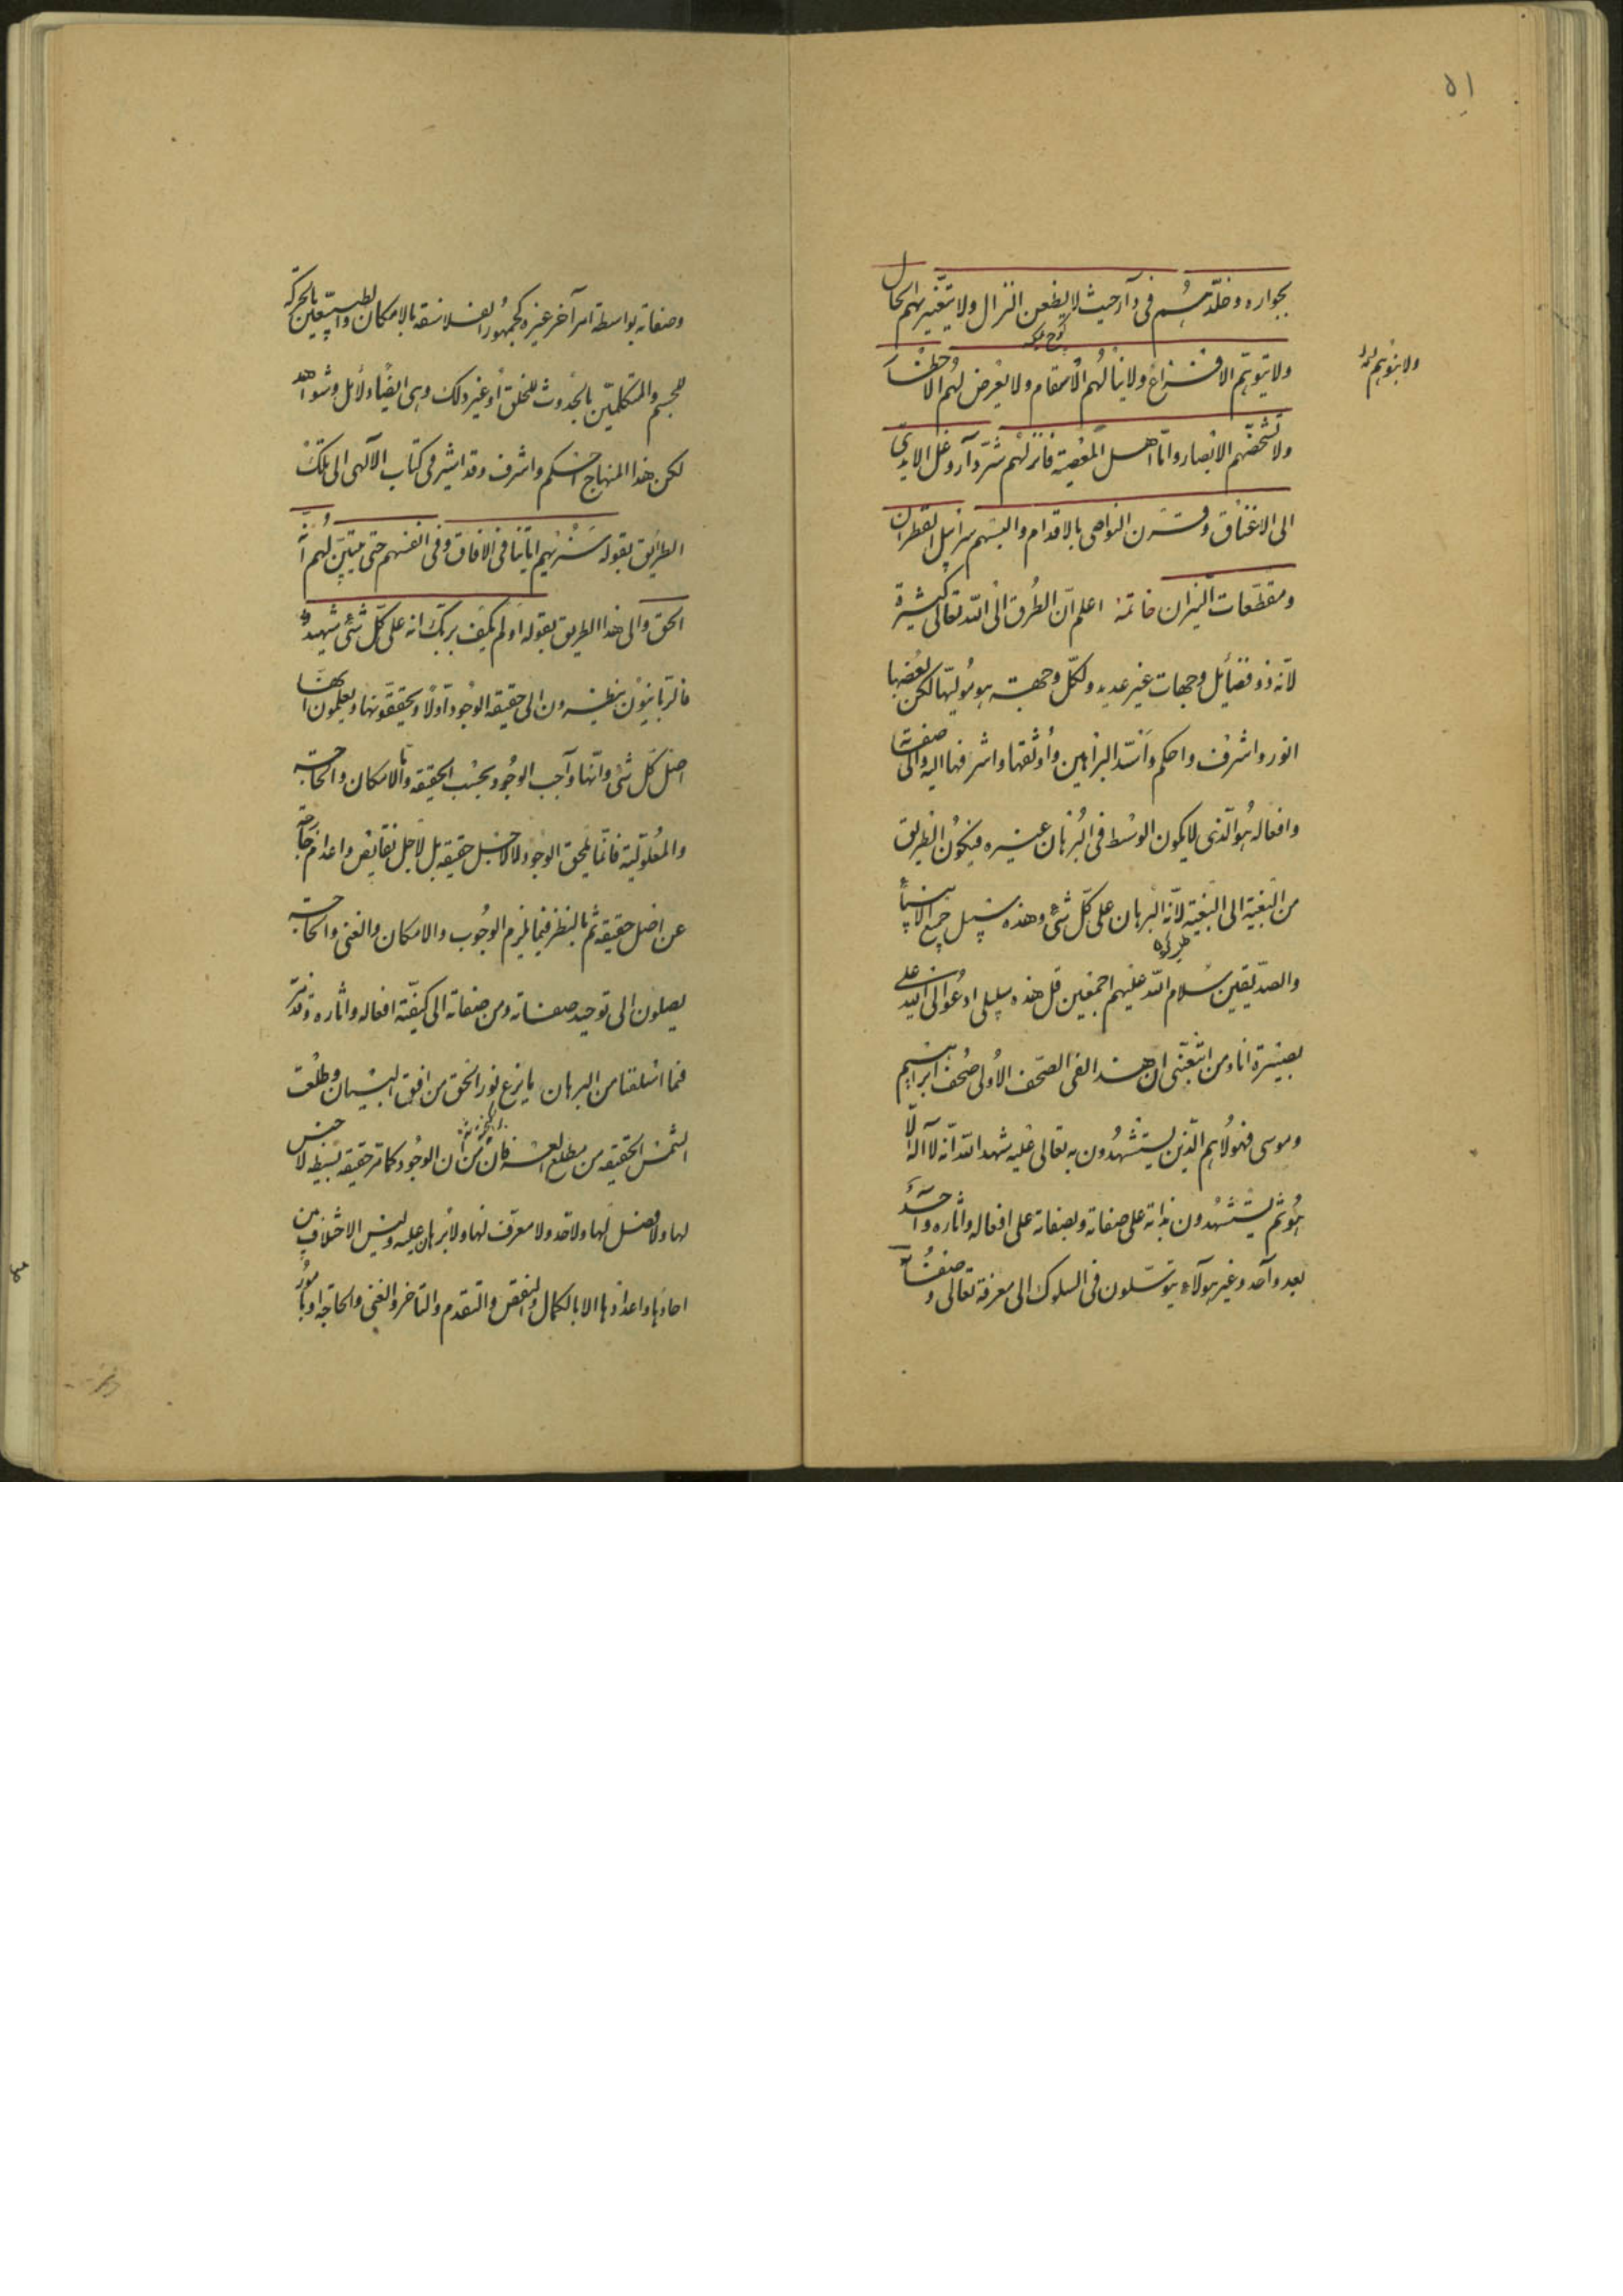 ٥١
بجواره وخلّدهم فى داره حيث لا يظعن النزال ولا يتغير بهم الحال
ولا تنوبهم الافزاع ولا ينالهم الاسقام ولا يعرض لهم الاخطار
ولا تشخصهم الابصار وامّا اهل المعصية فانزلهم شرّ دار وغل الايدى
الى الاعناق وقرن النواصى بالاقدام والبسهم سرابيل القطران
ومقطّعات النيران خاتمة اعلم انّ الطرق الى الله تعالى كثيرة
لانّه ذو فضائل وجهات غير عديدة ولكلّ وجهة هو موليّها لكن بعضها
انور واشرف واحكم واسدّ البراهين واوثقها واشرفها اليه والى صفته
وافعاله هو الّذى لا يكون الوسط فى البرهان غيره فيكون الطريق
من البغية الى البغية لانّه البرهان على كلّ شئ وهذه سبيل جميع الانبياء
والصدّيقين سلام الله عليهم اجمعين قل هذه سبيلى ادعوا الى الله على
بصيرة انا ومن اتبعنى ان هذا لفى الصحف الاولى صحف ابراهيم
وموسى فهولاء هم الّذين يستشهدون به تعالى عليه شهد الله انّه لا اله الّا
هو ثم يستشهدون بذاته على صفاته وبصفاته على افعاله واثاره واحدًا
بعد واحد وغير هولاء يتوسّلون فى السلوك الى معرفة تعالى و صفاته
ولا تنوبهم
وصفاته بواسطة امر آخر غيره كجمهور الفلاسفة بالامكان والطبيعيّين بالحركة
للجسم والمتكلّمين بالحدوث للخلق او غير ذلك وهى ايضًا دلائل وشواهد
لكن هذا المنهاج احكم واشرف وقد اشير فى كتاب الآلهى الى تلك
الطرايق بقوله سنريهم اياتنا فى الافاق وفى انفسهم حتى يتبيّن لهم انّه
الحق والى هذا الطريق بقوله اولم يكف بربّك انه على كلّ شئ شهيد
فالربّانيّون ينظرون الى حقيقة الوجود اوّلًا ويحقّقونها ويعلمون انّها
اصل كلّ شئ وانّها واجب الوجود بحسب الحقيقة وامّا الامكان والحاجة
والمعلوليّة فانّما يلحق الوجود لا لاجل حقيقة بل لاجل نقايص واعدام خارجة
عن اصل حقيقة ثم بالنظر فيما يلزم الوجوب والامكان والغنى والحاجة
يصلون الى توحيد صفاته ومن صفاته الى كيفيّة افعاله واثاره وقد مر
فما اسلفنا من البرهان ما بزغ نور الحق من افق البيان وطلعت
الشمس الحقيقة من مطلع العرفان من ان الوجود كما مر حقيقة بسيطة لا جنس
لها ولا فصل لها ولا حد ولا معرّف لها ولا برهان عليه وليس الاختلاف بين
احادها واعدادها الا بالكمال والنقص والتقدم والتاخر والغنى والحاجة او بامور